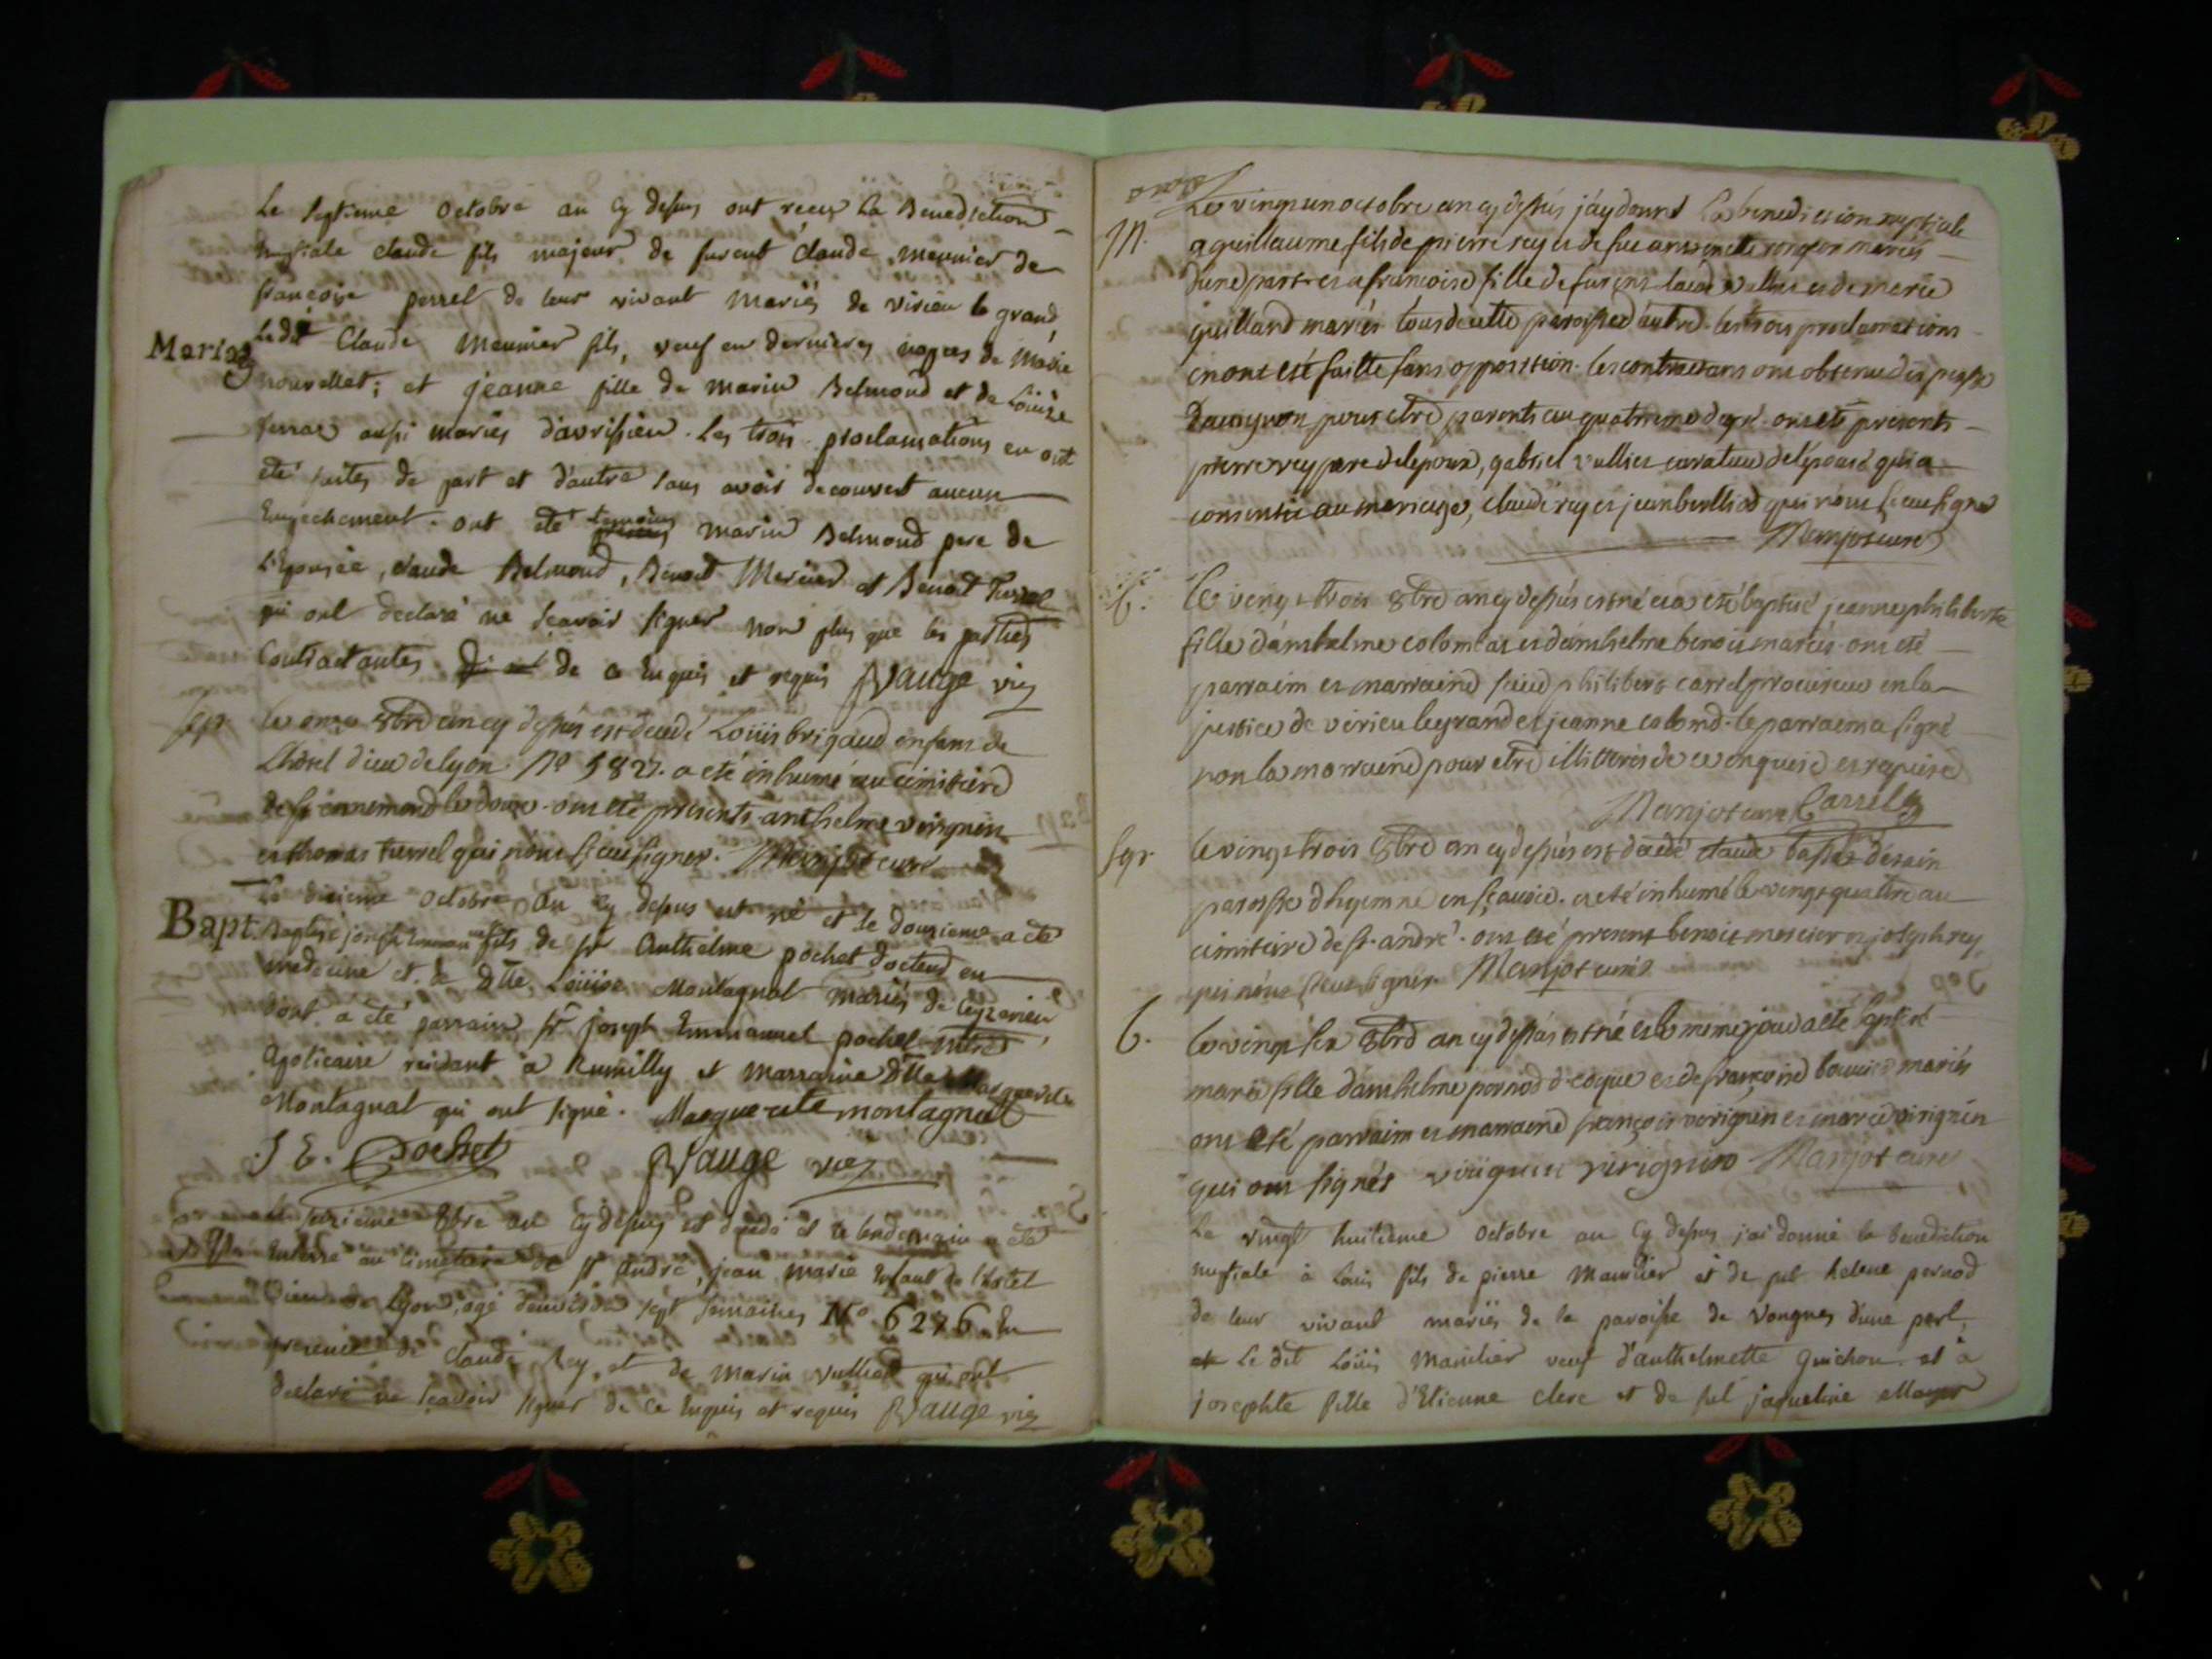 Le septieme octobre an cy dessus ont recus la Benediction
nuptiale claude fils majeur de furent claude meunier de
françoise perret de leur vivant mariés de virieu le grand
Mariag ledit Claude Meunier fils, veuf en dernieres nopces de Marie
nouvellet; et jeanne fille de marin Belmond et de Louise
aussi mariés d'avrissieu. Les trois proclamations en ont
eté faites de part et d'autre sans avoir decouvert aucun
Empechement. ont eté temoins marin Belmond pere de
L'Epousée, claude Belmond, Benoit Mercier et Benoit
qui ont declaré ne scavoir signer non plus que les parties
Contractantes de ce Enquis et requis Vauge vic
Sep. Le onze 8bre an cy dessus est decedé Loüis brigaud enfant de
L'hotel dieu de lyon. N° 5827. a eté inhumé au cimitiere
de le douze. ont eté presents anthelme virignin
et thomas turrel qui n'ont sceu signer. Manjot curé
Le dixieme octobre an cy dessus est né et le douzieme a eté
Bapt. Baptisé joseph fils de sr Anthelme pochet docteur en
medecine et de Dlle Loüise Montagnat mariés de Ceyzerieu
dont a eté parrain sr joseph Emmanuel pochet
Apoticaire residant à Rumilly et marraine Dlle Marguerite
Montagnat qui ont signé. Marguerite montagnat
J E. Pochet Vauge vic
seizieme 8bre an cy dessus est decedé et le lendemain a eté
Sep. Enterré au cimetiere de st André, jean marie Enfant de l'hotel
Dieu de Lyon, agé d'environ sept semaines N° 6276 En
presence de Claude Rey, et de marin vulliod qui ont
declaré ne scavoir signer de ce Enquis et requis Vauge vic
Le vingt un octobre an cy dessus j'ay donné la benediction nuptiale
M. a guillaume fils de pierre rey et de fue mariés
d'une part et a francoise fille de et de marie
guillard mariés tous de cette paroisse d'autre. les trois proclamations
en ont eté faitte sans opposition. les contractans ont obtenue dispense
d'avignon pour etre parents au quatrieme degré. ont eté presents
pierre rey pere de l'epoux, gabriel vullier curateur de l'épouse qui a
consenti au mariage, claude rey et jean vulliod qui n'ont sceu signé
Manjot curé
b. Le vingt trois 8bre an cy dessus est né et a eté baptisé jeanne philiberte
fille d'anthelme colomb et d'anthelme benoit mariés. ont eté
parraim et marraine sieur philibert carrel procureur en la
justice de virieu le grand et jeanne colomb. le parraim a signé
non la marraine pour etre illitterés de ce enquise et requise
Manjot curé Carrel
Sep. Le vingt trois 8bre an cy dessus est decedé claude
paroisse d'hyenne en sçavoie. a eté inhumé le vingt quatre au
cimitiere de st. andré. ont eté present benoit mercier et joseph rey
qui n'ont sceu signer. Manjot curé
b. Le vingt six 8bre an cy dessus est né et le meme jour a eté baptisé
marie fille d'anthelme pernod d'eoque et de françoise bouvier mariés
ont eté parraim et marraine françois virignin et marie virignin
qui ont signés virignin virignin Manjot curé
Le vingt huitieme octobre an cy dessus j'ai donné la benediction
nuptiale à Louis fils de pierre Maurilier et de fut helene pernod
de leur vivant mariés de la paroisse de Vongnes d'une part,
Le dit Loüis Maurilier veuf d'anthelmette Guichon. et à
josephte fille d'Etienne clerc et de fut jaqueline Mayer